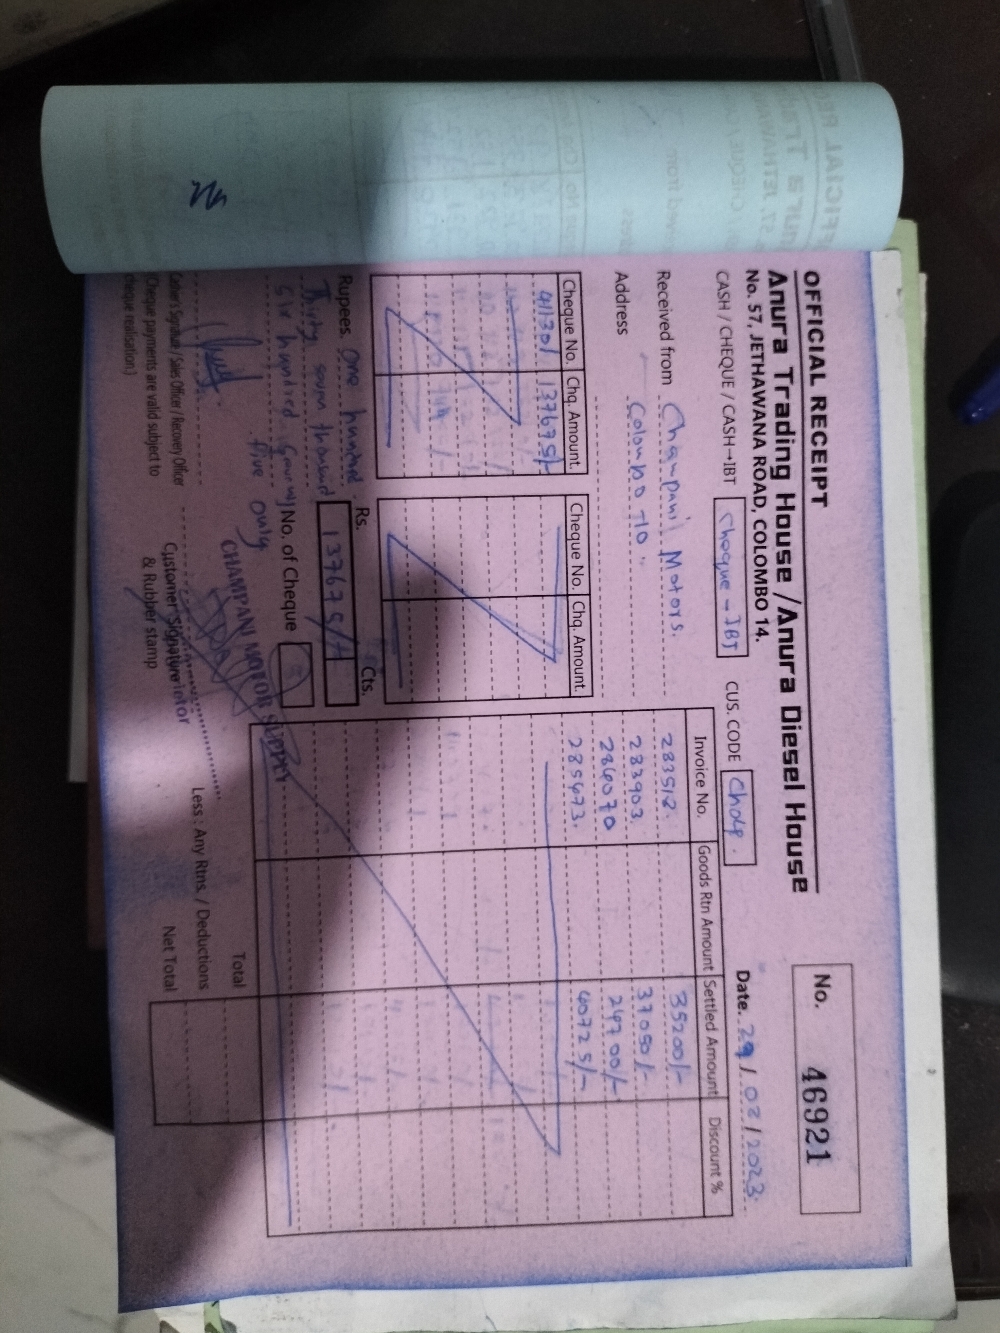 OFFICIAL RECEIPT
Anura Trading House / Anura Diesel House
No. 57, JETHAWANA ROAD, COLOMBO 14.
No. 46921
CASH / CHEQUE / CASH→IBT Cheque - IBT
CUS. CODE
Date. 29/02/2023
Received from Champani Motors.
Address Colombo 10.
Cheque No. Chq. Amount. Cheque No. Chq. Amount.
411301 137675/-
Invoice No. Goods Rtn Amount Settled Amount Discount %
283512. 35200/-
283903. 37050/-
286070 24700/-
285473. 40725/-
Rupees. One hundred
Thirty seven thousand
Six hundred Seventy
five only
Rs. Cts.
137675/-
No. of Cheque
Cashier's Signature / Sales Officer / Recovery Officer
(Cheque payments are valid subject to
cheque realisation.)
CHAMPANI MOTOR SUPPLY
Customer Signature
& Rubber stamp
Total
Less : Any Rtns. / Deductions
Net Total